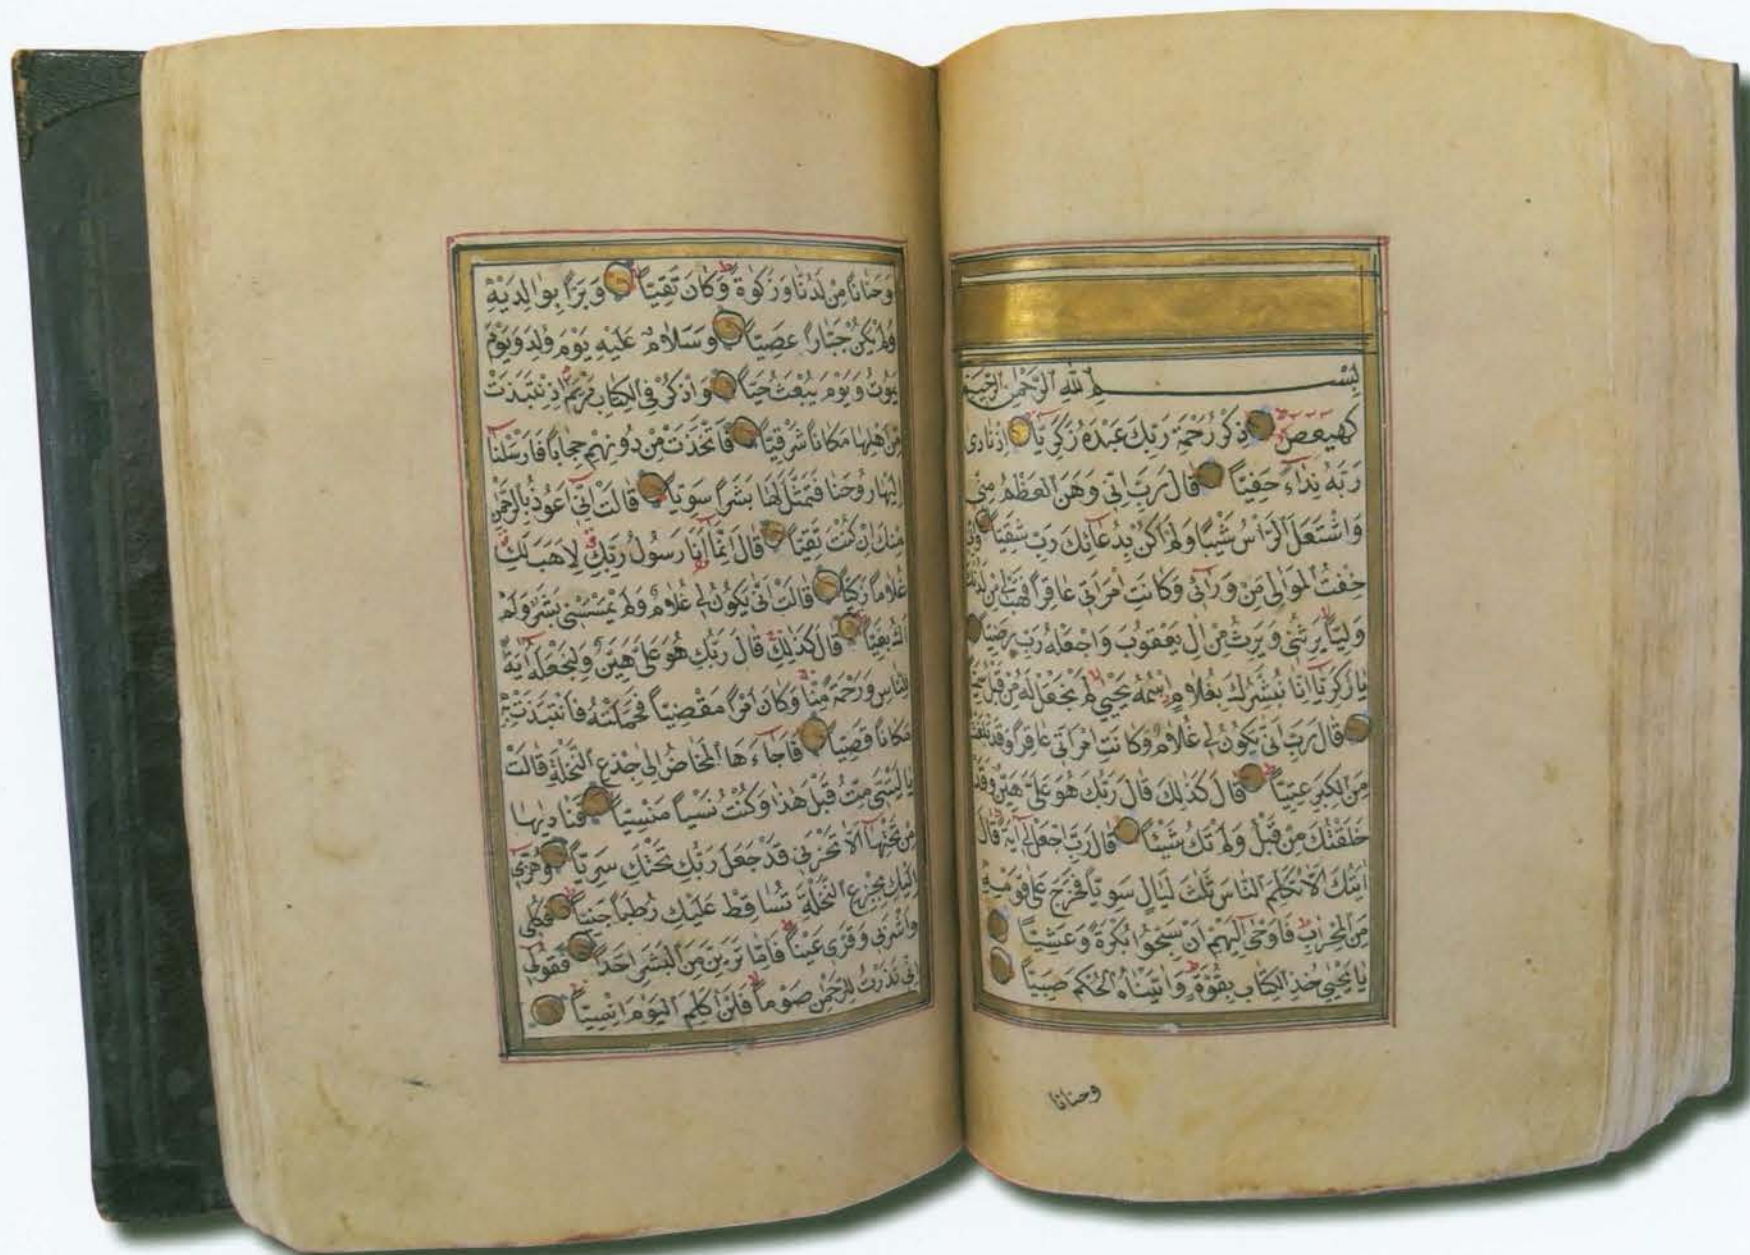 بِسْمِ اللّٰهِ الرَّحْمٰنِ الرَّحِيمِ
كهيعص ذِكْرُ رَحْمَةِ رَبِّكَ عَبْدَهُ زَكَرِيَّا اِذْ نَادٰى
رَبَّهُ نِدَاءً خَفِيًّا قَالَ رَبِّ اِنِّى وَهَنَ الْعَظْمُ مِنِّى
وَاشْتَعَلَ الرَّأْسُ شَيْبًا وَلَمْ اَكُنْ بِدُعَائِكَ رَبِّ شَقِيًّا وَاِنِّى
خِفْتُ الْمَوَالِىَ مِنْ وَرَائِى وَكَانَتِ امْرَاَتِى عَاقِرًا فَهَبْ لِى مِنْ لَدُنْكَ
وَلِيًّا يَرِثُنِى وَيَرِثُ مِنْ اٰلِ يَعْقُوبَ وَاجْعَلْهُ رَبِّ رَضِيًّا
يَا زَكَرِيَّا اِنَّا نُبَشِّرُكَ بِغُلَامٍ اسْمُهُ يَحْيٰى لَمْ نَجْعَلْ لَهُ مِنْ قَبْلُ سَمِيًّا
قَالَ رَبِّ اَنّٰى يَكُونُ لِى غُلَامٌ وَكَانَتِ امْرَاَتِى عَاقِرًا وَقَدْ بَلَغْتُ
مِنَ الْكِبَرِ عِتِيًّا قَالَ كَذٰلِكَ قَالَ رَبُّكَ هُوَ عَلَىَّ هَيِّنٌ وَقَدْ
خَلَقْتُكَ مِنْ قَبْلُ وَلَمْ تَكُ شَيْئًا قَالَ رَبِّ اجْعَلْ لِى اٰيَةً قَالَ
اٰيَتُكَ اَلَّا تُكَلِّمَ النَّاسَ ثَلٰثَ لَيَالٍ سَوِيًّا فَخَرَجَ عَلٰى قَوْمِهِ
مِنَ الْمِحْرَابِ فَاَوْحٰى اِلَيْهِمْ اَنْ سَبِّحُوا بُكْرَةً وَعَشِيًّا
يَا يَحْيٰى خُذِ الْكِتَابَ بِقُوَّةٍ وَاٰتَيْنَاهُ الْحُكْمَ صَبِيًّا
وحنانا
وَحَنَانًا مِنْ لَدُنَّا وَزَكٰوةً وَكَانَ تَقِيًّا وَبَرًّا بِوَالِدَيْهِ
وَلَمْ يَكُنْ جَبَّارًا عَصِيًّا وَسَلَامٌ عَلَيْهِ يَوْمَ وُلِدَ وَيَوْمَ
يَمُوتُ وَيَوْمَ يُبْعَثُ حَيًّا وَاذْكُرْ فِى الْكِتَابِ مَرْيَمَ اِذِ انْتَبَذَتْ
مِنْ اَهْلِهَا مَكَانًا شَرْقِيًّا فَاتَّخَذَتْ مِنْ دُونِهِمْ حِجَابًا فَاَرْسَلْنَا
اِلَيْهَا رُوحَنَا فَتَمَثَّلَ لَهَا بَشَرًا سَوِيًّا قَالَتْ اِنِّى اَعُوذُ بِالرَّحْمٰنِ
مِنْكَ اِنْ كُنْتَ تَقِيًّا قَالَ اِنَّمَا اَنَا رَسُولُ رَبِّكِ لِاَهَبَ لَكِ
غُلَامًا زَكِيًّا قَالَتْ اَنّٰى يَكُونُ لِى غُلَامٌ وَلَمْ يَمْسَسْنِى بَشَرٌ وَلَمْ
اَكُ بَغِيًّا قَالَ كَذٰلِكِ قَالَ رَبُّكِ هُوَ عَلَىَّ هَيِّنٌ وَلِنَجْعَلَهُ اٰيَةً
لِلنَّاسِ وَرَحْمَةً مِنَّا وَكَانَ اَمْرًا مَقْضِيًّا فَحَمَلَتْهُ فَانْتَبَذَتْ بِهِ
مَكَانًا قَصِيًّا فَاَجَاءَهَا الْمَخَاضُ اِلٰى جِذْعِ النَّخْلَةِ قَالَتْ
يَا لَيْتَنِى مِتُّ قَبْلَ هٰذَا وَكُنْتُ نَسْيًا مَنْسِيًّا فَنَادٰيهَا
مِنْ تَحْتِهَا اَلَّا تَحْزَنِى قَدْ جَعَلَ رَبُّكِ تَحْتَكِ سَرِيًّا وَهُزِّى
اِلَيْكِ بِجِذْعِ النَّخْلَةِ تُسَاقِطْ عَلَيْكِ رُطَبًا جَنِيًّا فَكُلِى
وَاشْرَبِى وَقَرِّى عَيْنًا فَاِمَّا تَرَيِنَّ مِنَ الْبَشَرِ اَحَدًا فَقُولِى
اِنِّى نَذَرْتُ لِلرَّحْمٰنِ صَوْمًا فَلَنْ اُكَلِّمَ الْيَوْمَ اِنْسِيًّا